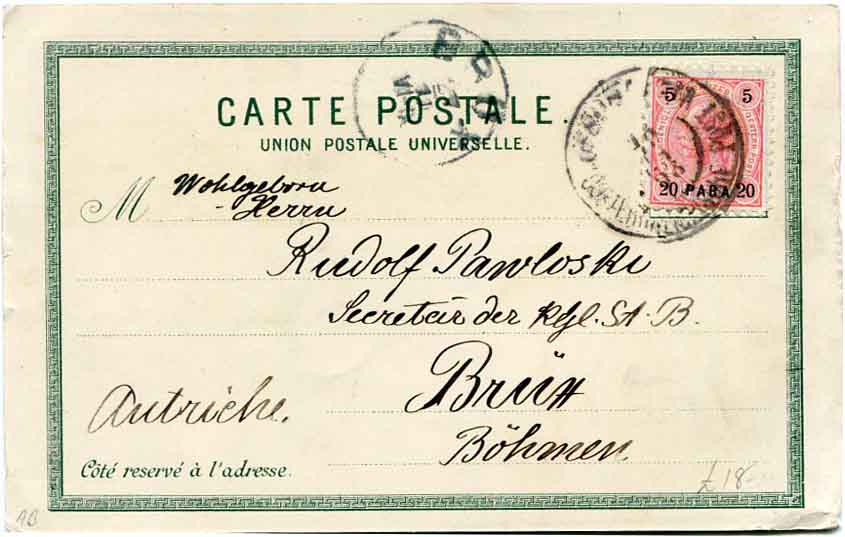 CARTE POSTALE.
UNION POSTALE UNIVERSELLE.
5 5
20 PARA 20
M Wohlgeborn
Herrn
Rudolf Pawloski
Secretär der Kgl. St. B.
Brüx
Böhmen
Autriche.
Côté reservé à l'adresse.
£18
AB